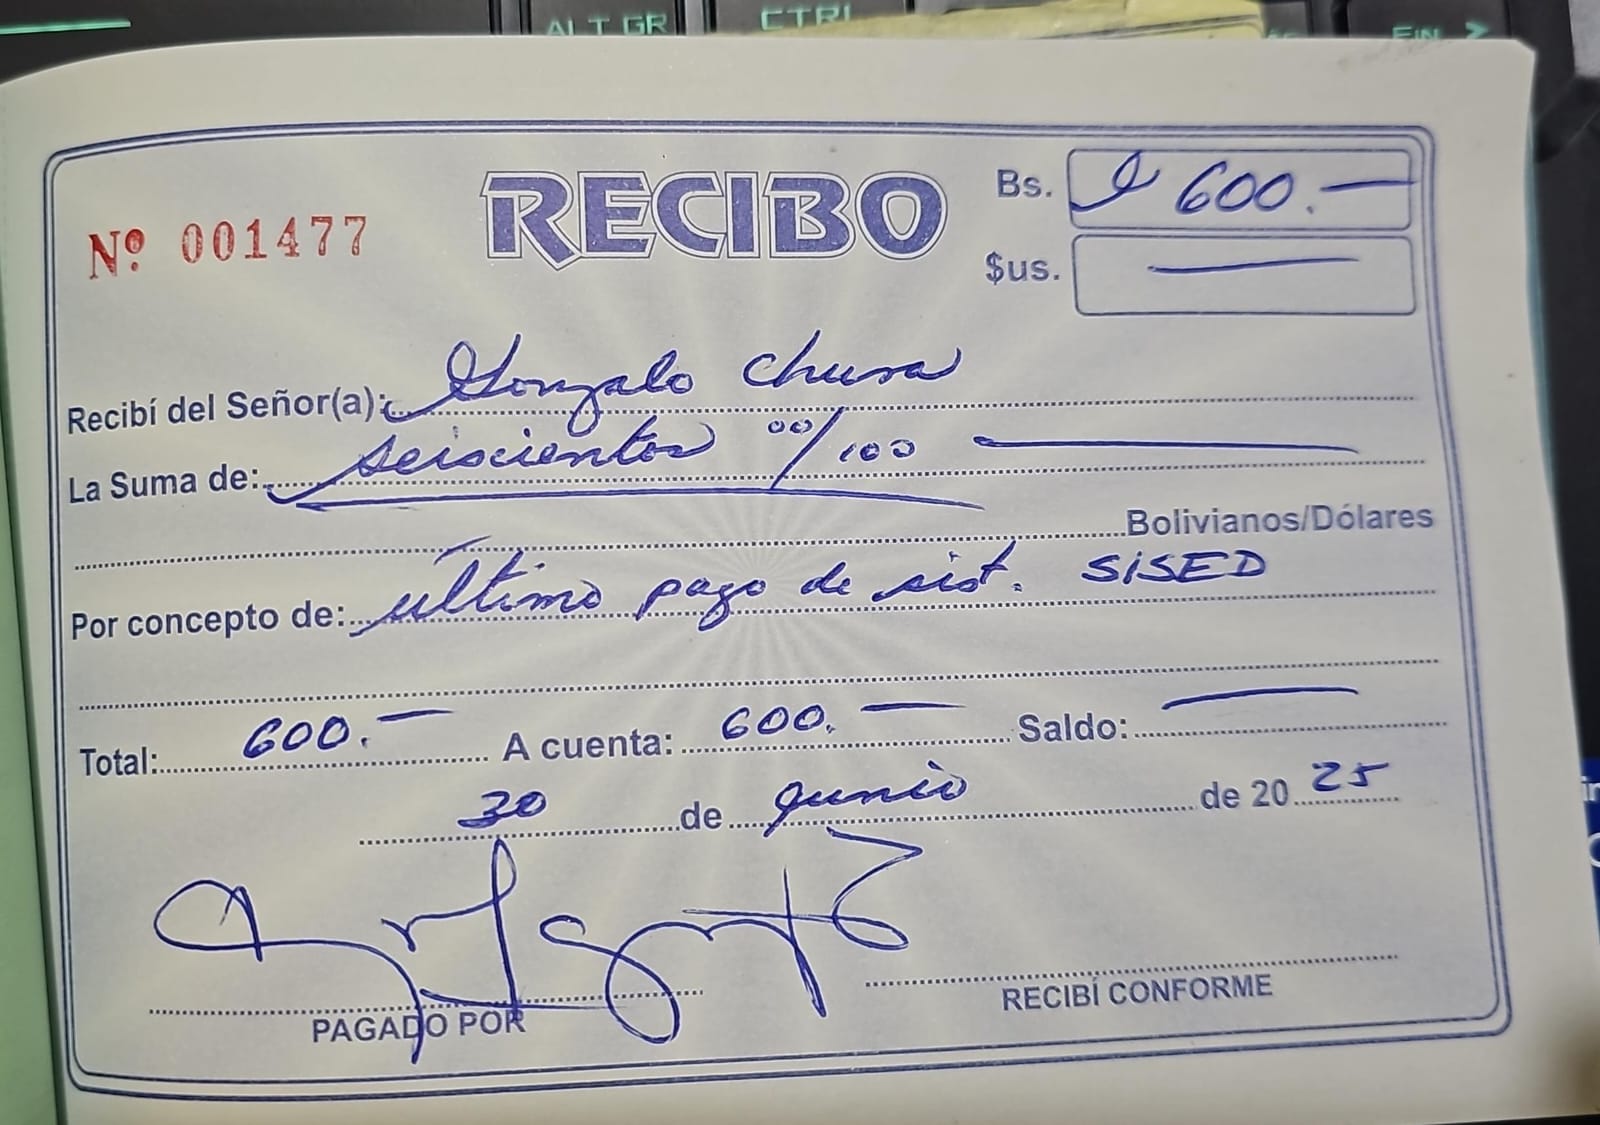 ALT GR CTRL FIN >
RECIBO
Nº 001477
Bs. 600.—
$us. —
Recibí del Señor(a): Gonzalo Chura
La Suma de: seiscientos 00/100 —
Bolivianos/Dólares
Por concepto de: último pago de sist. SISED
Total: 600.— A cuenta: 600.— Saldo: —
30 de junio de 20 25
PAGADO POR RECIBÍ CONFORME